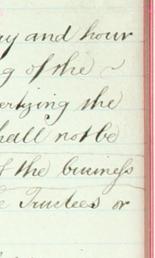 ay and hour
g of the ~
ertizing the
hall not be
f the business
e Trustees or